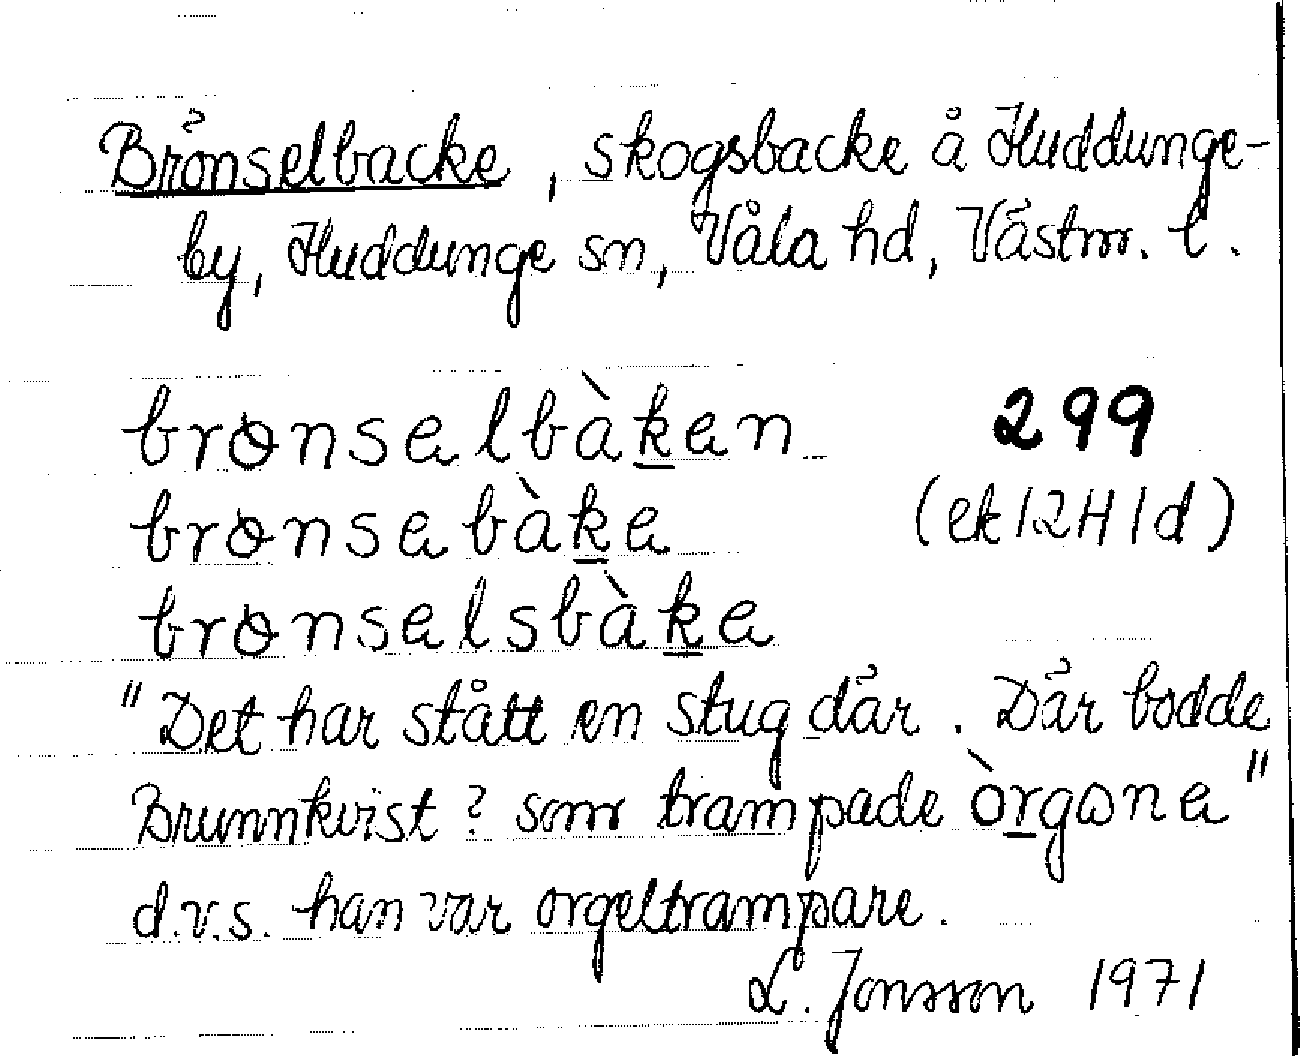 Brönselbacke, skogsbacke å Huddunge-
by, Huddunge sn, Våla hd, Västm. l.
brɵnsəlbàkən 299
brɵnsəbàkə (ek 12H1d)
brɵnsəlsbàkə
"Det har stått en stug där. Där bodde
Brunnkvist? som trampade òrgɷnə"
d.v.s. han var orgeltrampare.
L. Jonsson 1971